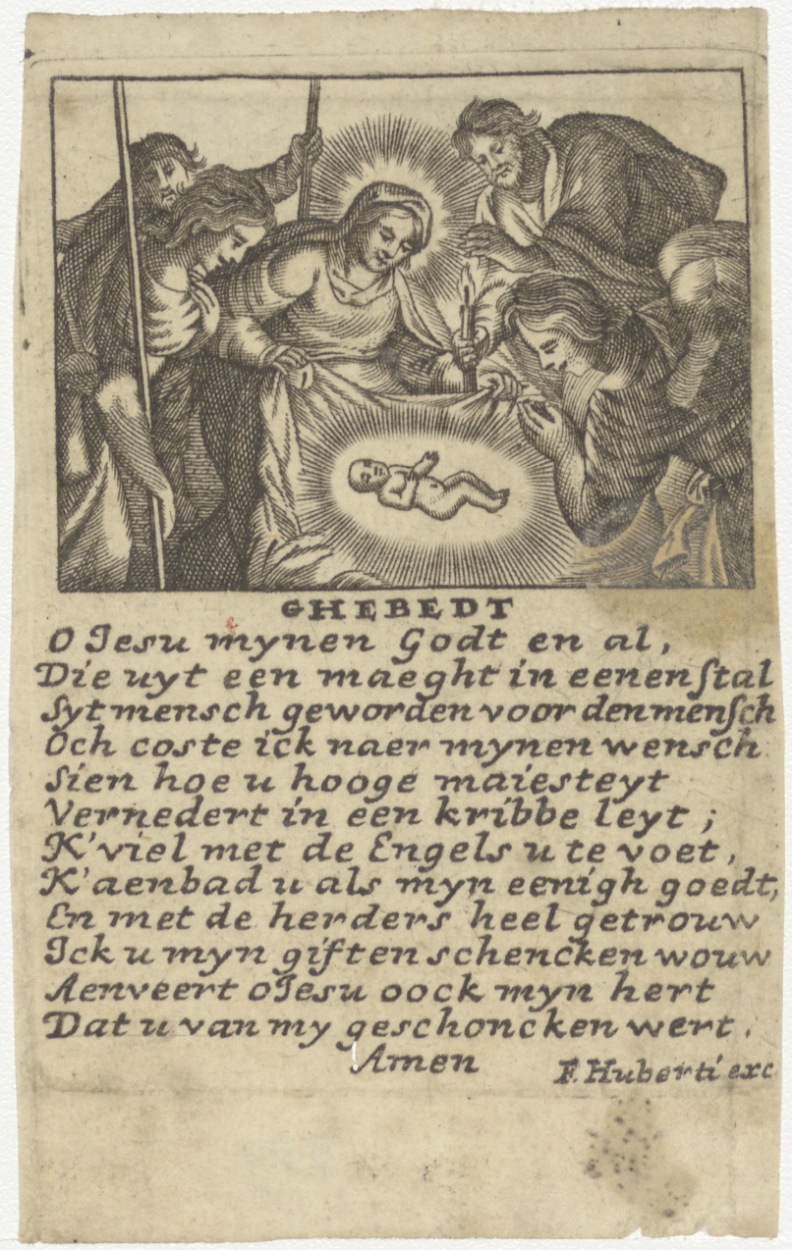 GHEBEDT
O Jesu mynen Godt en al,
Die uyt een maeght in eenen ſtal
Syt mensch geworden voor den menſch
Och coste ick naer mynen wensch
Sien hoe u hooge maiesteyt
Vernedert in een kribbe leyt ;
K'viel met de Engels u te voet,
K'aenbad u als myn eenigh goedt,
En met de herders heel getrouw
Ick u myn giften schencken wouw
Aenveert o Jesu oock myn hert
Dat u van my geschoncken wert.
Amen
F. Huberti exc